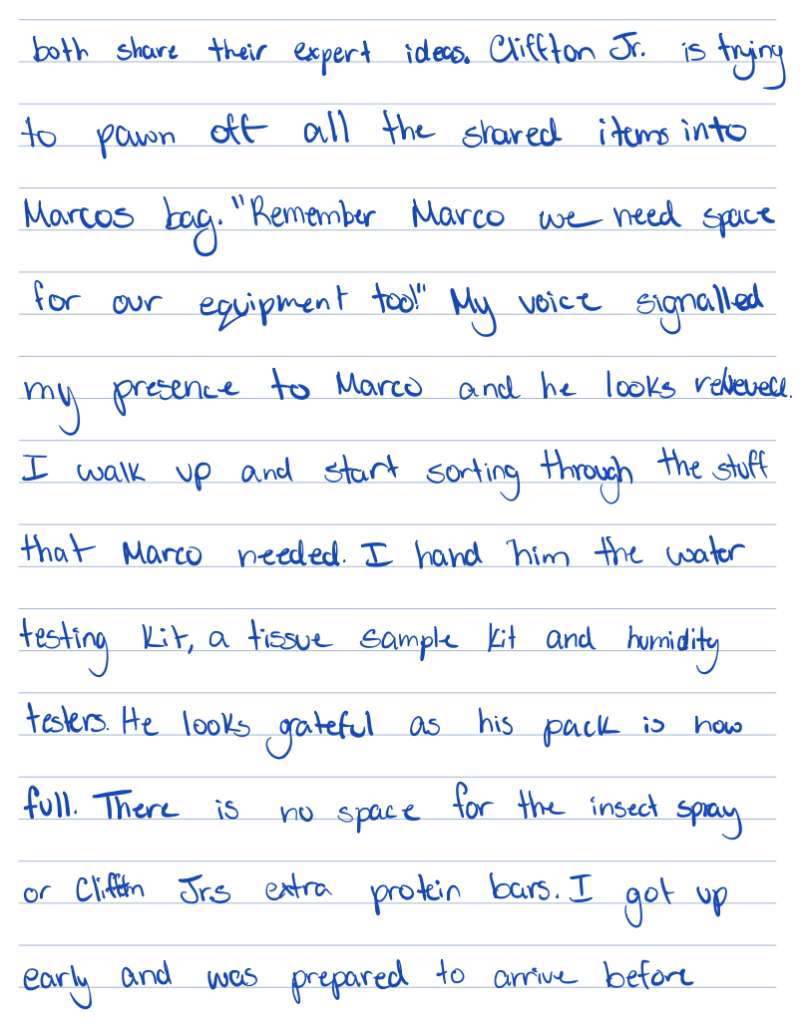 both share their expert ideas. Cliffton Jr. is trying
to pawn off all the shared items into
Marcos bag. "Remember Marco we need space
for our equipment too!" My voice signalled
my presence to Marco and he looks relieved.
I walk up and start sorting through the stuff
that Marco needed. I hand him the water
testing kit, a tissue sample kit and humidity
testers. He looks grateful as his pack is now
full. There is no space for the insect spray
or Cliffton Jrs extra protein bars. I got up
early and was prepared to arrive before